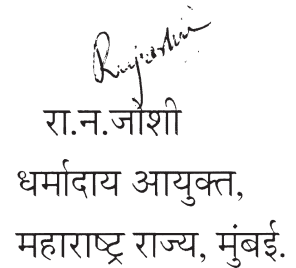 रा.न.जोशी
धर्मादाय आयुक्त,
महाराष्ट्र राज्य, मुंबई.